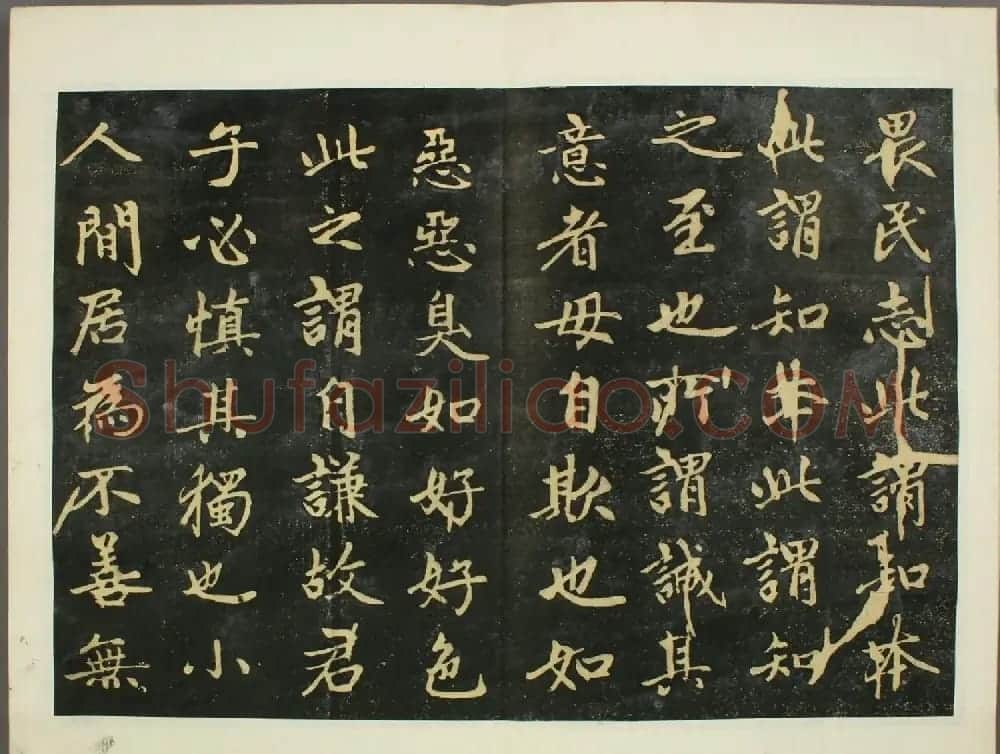 畏民志此謂知本
此謂知本此謂知
之至也所謂誠其
意者毋自欺也如
惡惡臭如好好色
此之謂自謙故君
子必慎其獨也小
人間居為不善無
Shufaziliao.COM